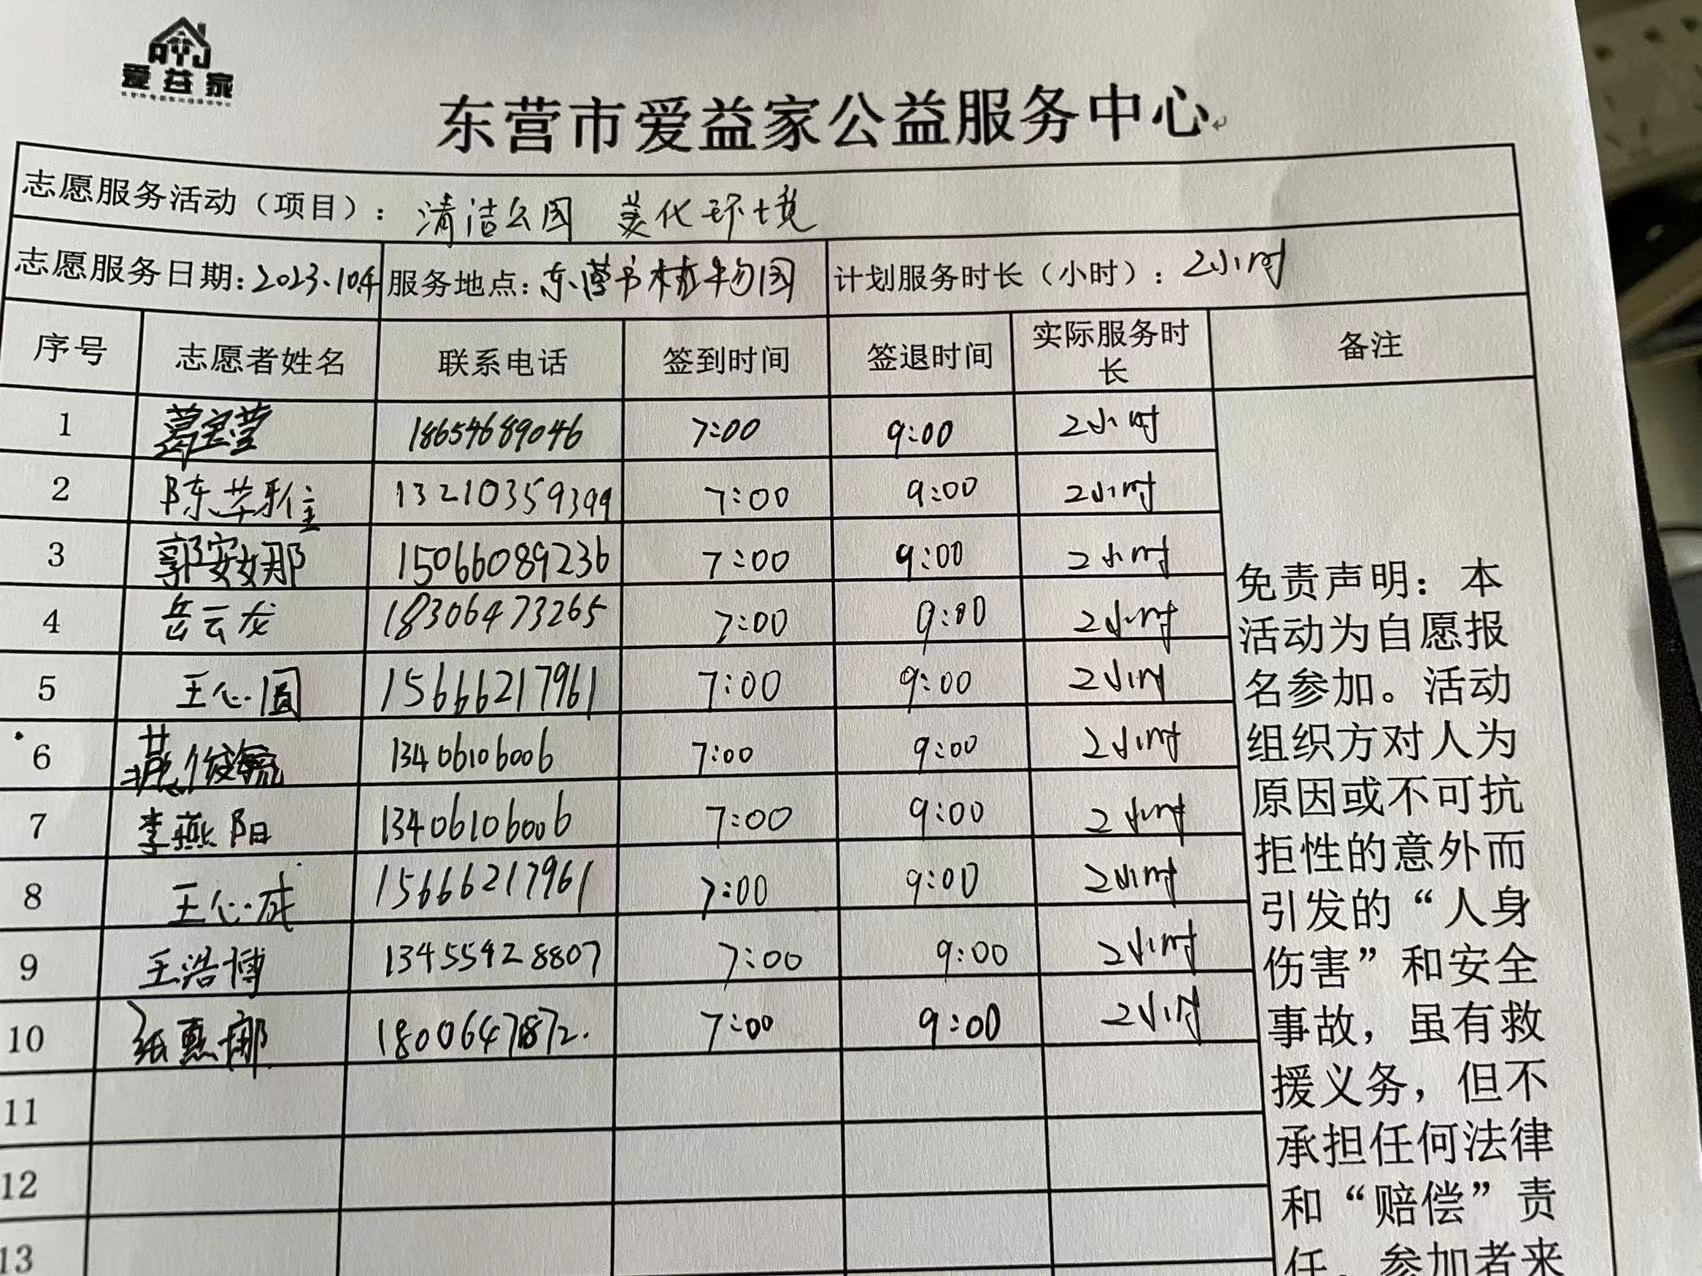 AYJ
爱益家
东营市爱益家公益服务中心
志愿服务活动（项目）： 清洁公园 美化环境
志愿服务日期：2023.10.4 服务地点：东营市植物园 计划服务时长（小时）：2小时
序号 志愿者姓名 联系电话 签到时间 签退时间 实际服务时长 备注
1 18654689046 7:00 9:00 2小时
2 13210359399 7:00 9:00 2小时
3 郭安娜 15066089236 7:00 9:00 2小时
4 岳云龙 18306473265 7:00 9:00 2小时
5 王心圆 15666217961 7:00 9:00 2小时
6 13406106006 7:00 9:00 2小时
7 李燕阳 13406106006 7:00 9:00 2小时
8 王心成 15666217961 7:00 9:00 2小时
9 王浩博 13455428807 7:00 9:00 2小时
10 7:00 9:00 2小时
11
12
13
免责声明：本
活动为自愿报
名参加。活动
组织方对人为
原因或不可抗
拒性的意外而
引发的“人身
伤害”和安全
事故，虽有救
援义务，但不
承担任何法律
和“赔偿”责
任，参加者来